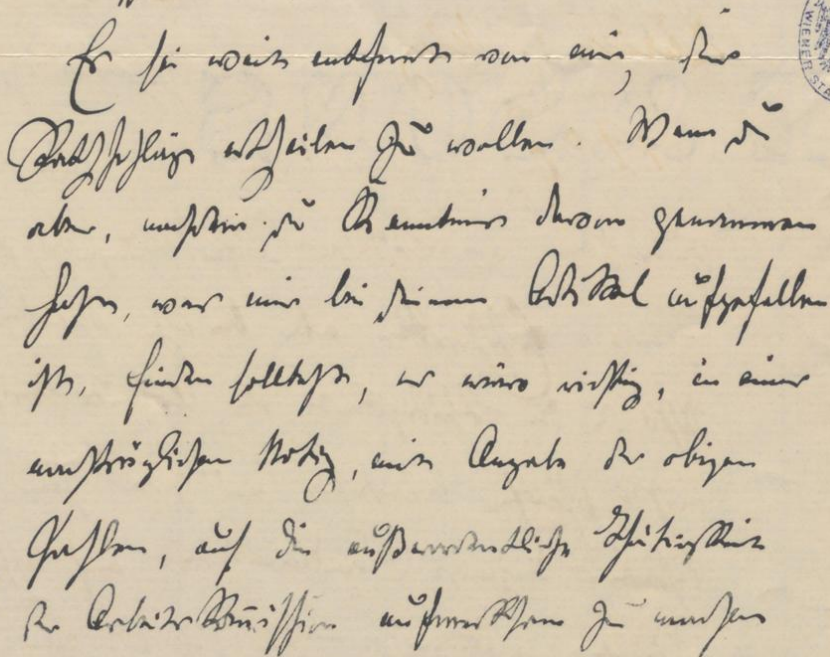 Es sei weit entfernt von mir, dir
Rathschläge ertheilen zu wollen. Wenn du
aber, nachdem du Kenntnis davon genommen
hast, was mir bei deinem Artikel aufgefallen
ist, finden solltest, es wäre richtig, in einer
nachträglichen Notiz, mit Angabe der obigen
Zahlen, auf die außerordentliche Thätigkeit
der Arbeitskommission aufmerksam zu machen
WIENER